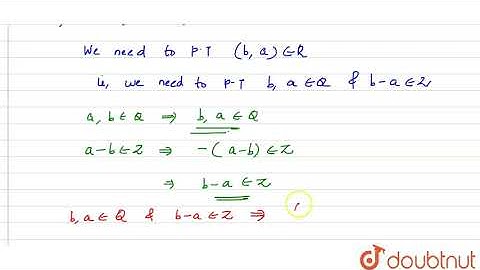 We need to P.T (b, a) ∈ R
ie, we need to P.T b, a ∈ Q & b-a ∈ Z
a, b ∈ Q ⇒ b, a ∈ Q
a-b ∈ Z ⇒ -(a-b) ∈ Z
⇒ b-a ∈ Z
b, a ∈ Q & b-a ∈ Z ⇒
doubtnut